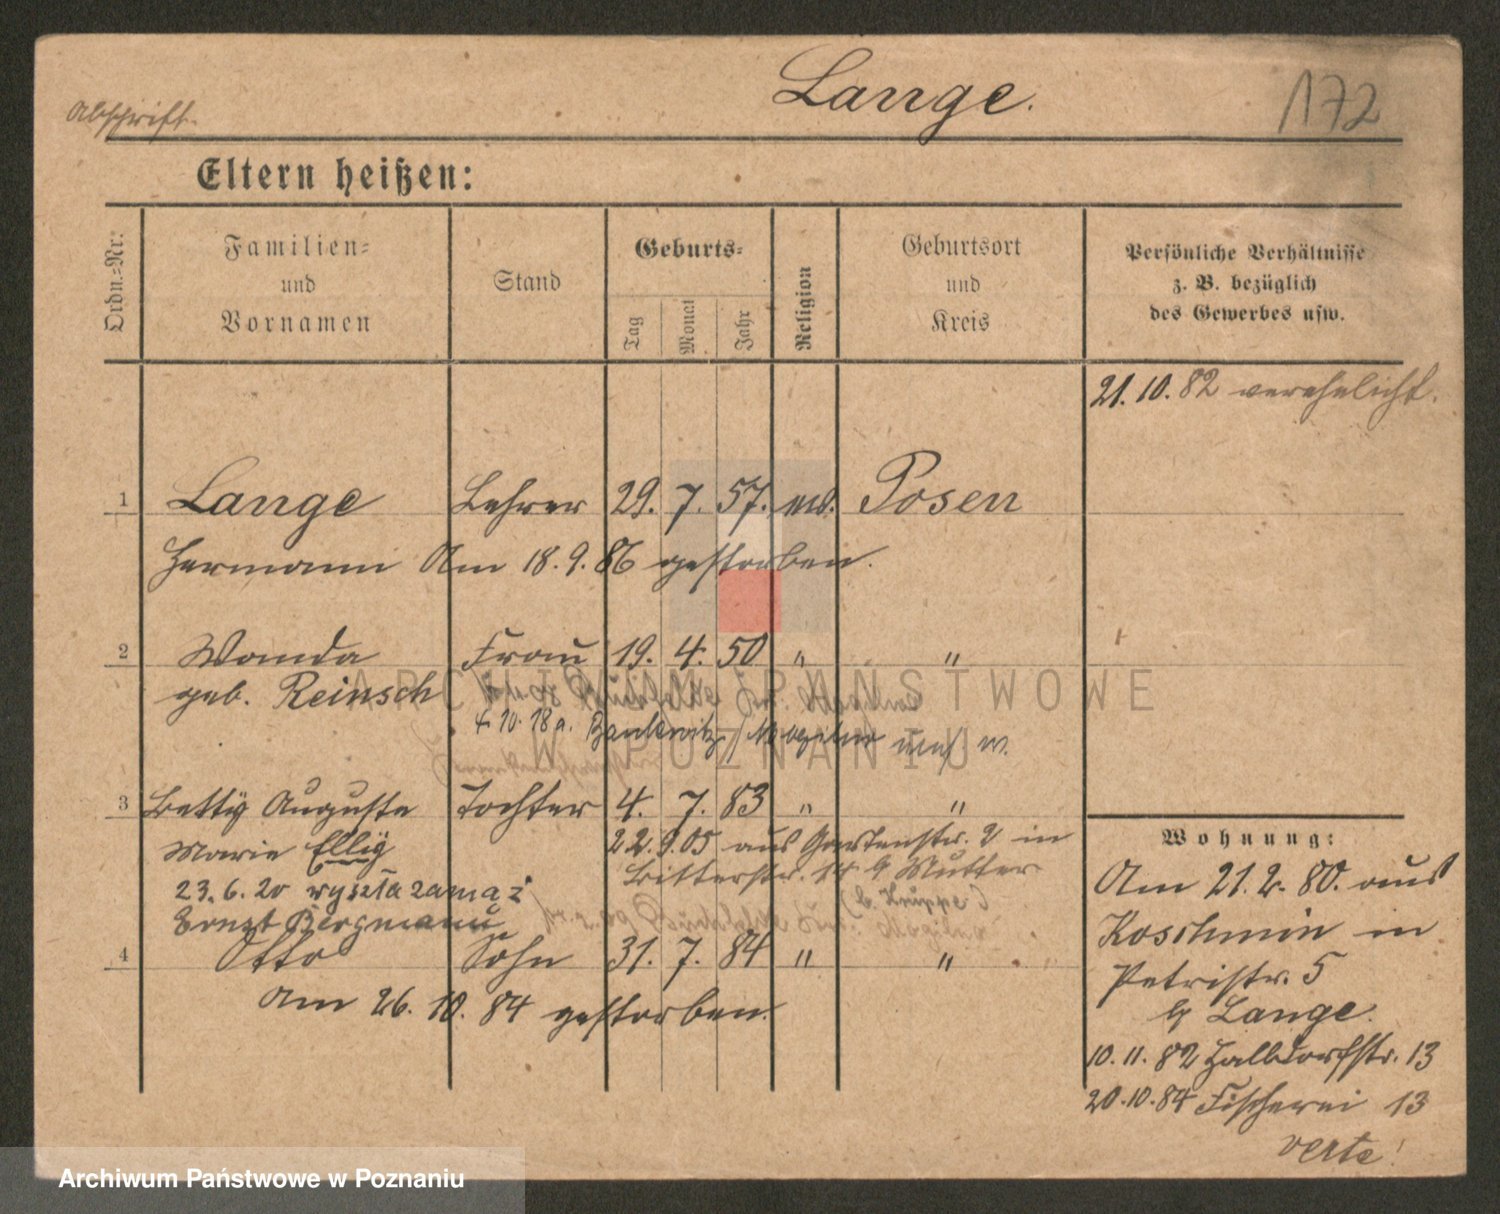 Lange.
172
Abschrift.
Eltern heißen:
Ordn.=Nr:
Familien=
und
Vornamen
Stand
Geburts=
Tag
Monat
Jahr
Religion
Geburtsort
und
Kreis
Persönliche Verhältnisse
z. B. bezüglich
des Gewerbes usw.
21.10.82 verehelicht.
1 Lange Lehrer 29. 7. 57. ev. Posen
Hermann Am 18.9.86 gestorben.
2 Wanda Frau 19. 4. 50 " "
geb. Reinsch
3 Betty Auguste Tochter 4. 7. 83 " "
Marie Elly 22.9.05 aus Gartenstr. 2 in
Bitterstr. 14 b Mutter
23.6.20 wyszła zamąż
Ernst Bergmann
4 Otto Sohn 31. 7. 84 " "
Am 26.10.84 gestorben.
Wohnung:
Am 21.2.80. aus
Koschmin in
Petristr. 5
b Lange.
10.11.82 Halbdorfstr. 13
20.10.84 Fischerei 13
verte!
ARCHIWUM PAŃSTWOWE
W POZNANIU
Archiwum Państwowe w Poznaniu